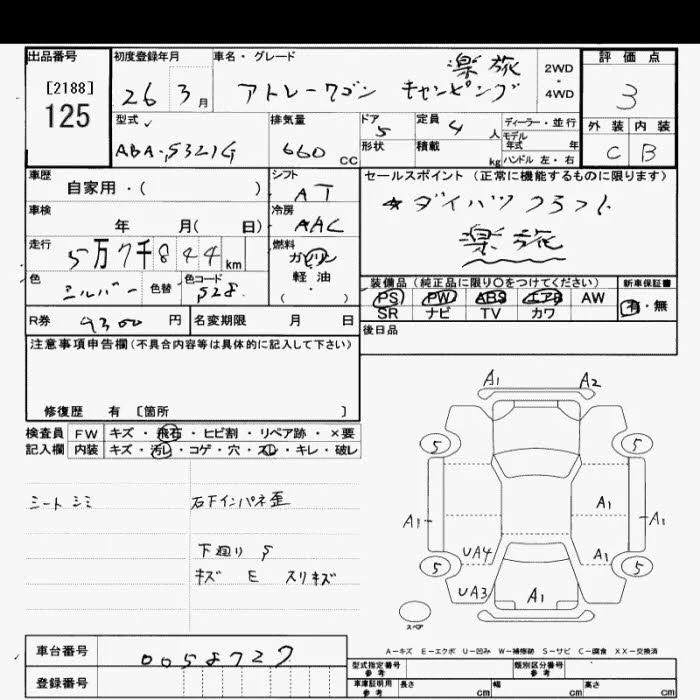 出品番号
[2188]
125
初度登録年月
26 3月
車名・グレード
楽旅
アトレーワゴン キャンピング
2WD
・
4WD
評価点
3
外装 内装
C B
型式
ABA-S321G
排気量
660 CC
ドア
5
形状
定員
4 人
積載
kg
ディーラー・並行
モデル
年式 年
ハンドル 左・右
車歴
自家用・( )
シフト
AT
セールスポイント (正常に機能するものに限ります)
☆ダイハツクラフト
楽旅
車検
年 月( 日)
冷房
AAC
走行
5万7千844km
燃料
ガソリン
軽油
・
( )
色
シルバー
色替
色コード
S28
装備品(純正品に限り○をつけてください)
PS PW ABS エアB AW
SR ナビ TV カワ
新車保証書
有・無
R券 9300 円
名変期限 月 日
後日品
注意事項申告欄(不具合内容等は具体的に記入して下さい)
修復歴 有 〔箇所 〕
検査員 FW キズ・飛石・ヒビ割・リペア跡・×要
記入欄 内装 キズ・汚れ・コゲ・穴・スレ・キレ・破レ
シートシミ
右下インパネ歪
下廻り S
キズ E スリキズ
A1 A2
5 5
A1
A1 A1
UA4 A1
5 5
UA3 A1
スペア
A-キズ E-エクボ U-凹み W-補修跡 S-サビ C-腐食 XX-交換済
車台番号 0058727
登録番号
型式指定番号
参考
類別区分番号
参考
車庫証明用
参考
長さ cm 幅 cm 高さ cm